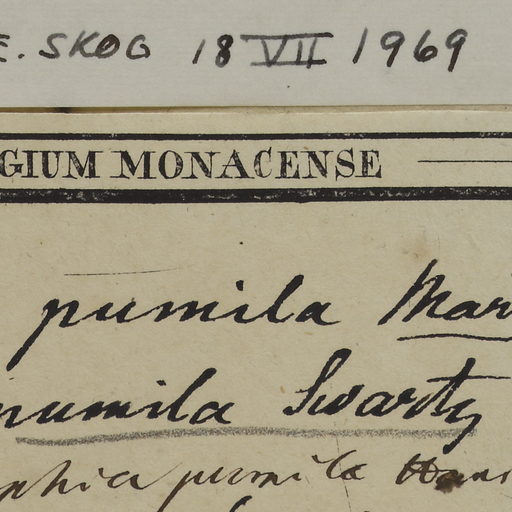 E. SKOG 18 VII 1969
GIUM MONACENSE
pumila Mar
pumila Swartz
phia pumila Hans